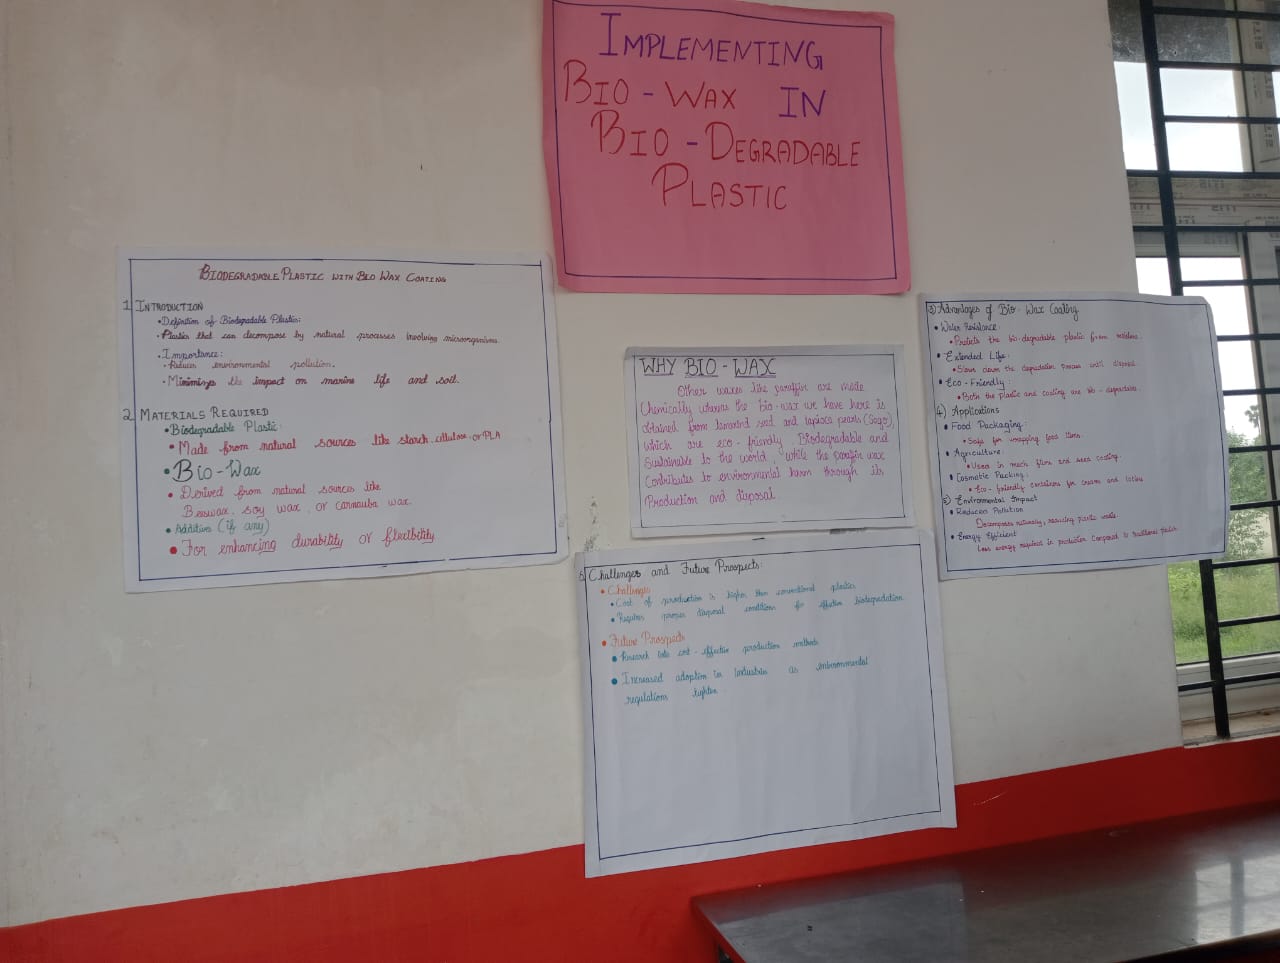 IMPLEMENTING
BIO - WAX IN
BIO - DEGRADABLE
PLASTIC
BIODEGRADABLE PLASTIC WITH BIO WAX COATING
1 INTRODUCTION
• Definition of Biodegradable Plastics:
• Plastics that can decompose by natural processes involving microorganisms.
• Importance:
• Reduces environmental pollution.
• Minimizes the impact on marine life and soil.
2 MATERIALS REQUIRED
• Biodegradable Plastic:
• Made from natural sources like starch, cellulose, or PLA
• BIO-WAX
• Derived from natural sources like
Beeswax, soy wax, or carnauba wax.
• Additives (if any)
• For enhancing durability or flexibility
WHY BIO - WAX
Other waxes like paraffin are made
Chemically whereas the bio-wax we have here is
obtained from tamarind seed and tapioca pearls (Sego),
which are eco-friendly, Biodegradable and
Sustainable to the world, while the paraffin wax
Contributes to environmental harm through its
Production and disposal
3) Advantages of Bio-Wax Coating
• Water Resistance:
• Protects the bio-degradable plastic from moisture.
• Extended Life:
• Slows down the degradation process until disposal
• Eco-Friendly:
• Both the plastic and coating are bio-degradable.
4) Applications
• Food Packaging:
• Safe for wrapping food items.
• Agriculture:
• Used in mulch films and seed coating.
• Cosmetic Packing:
• Eco-friendly containers for creams and lotions
5) Environmental Impact
• Reduces Pollution
Decomposes naturally, reducing plastic waste.
• Energy Efficient
Less energy required in production Compared to traditional plastics
6 Challenges and Future Prospects:
• Challenges
• Cost of production is higher than conventional plastics
• Requires proper disposal conditions for effective biodegradation.
• Future Prospects
• Research into cost-effective production methods
• Increased adoption in industries as environmental
regulations tighten